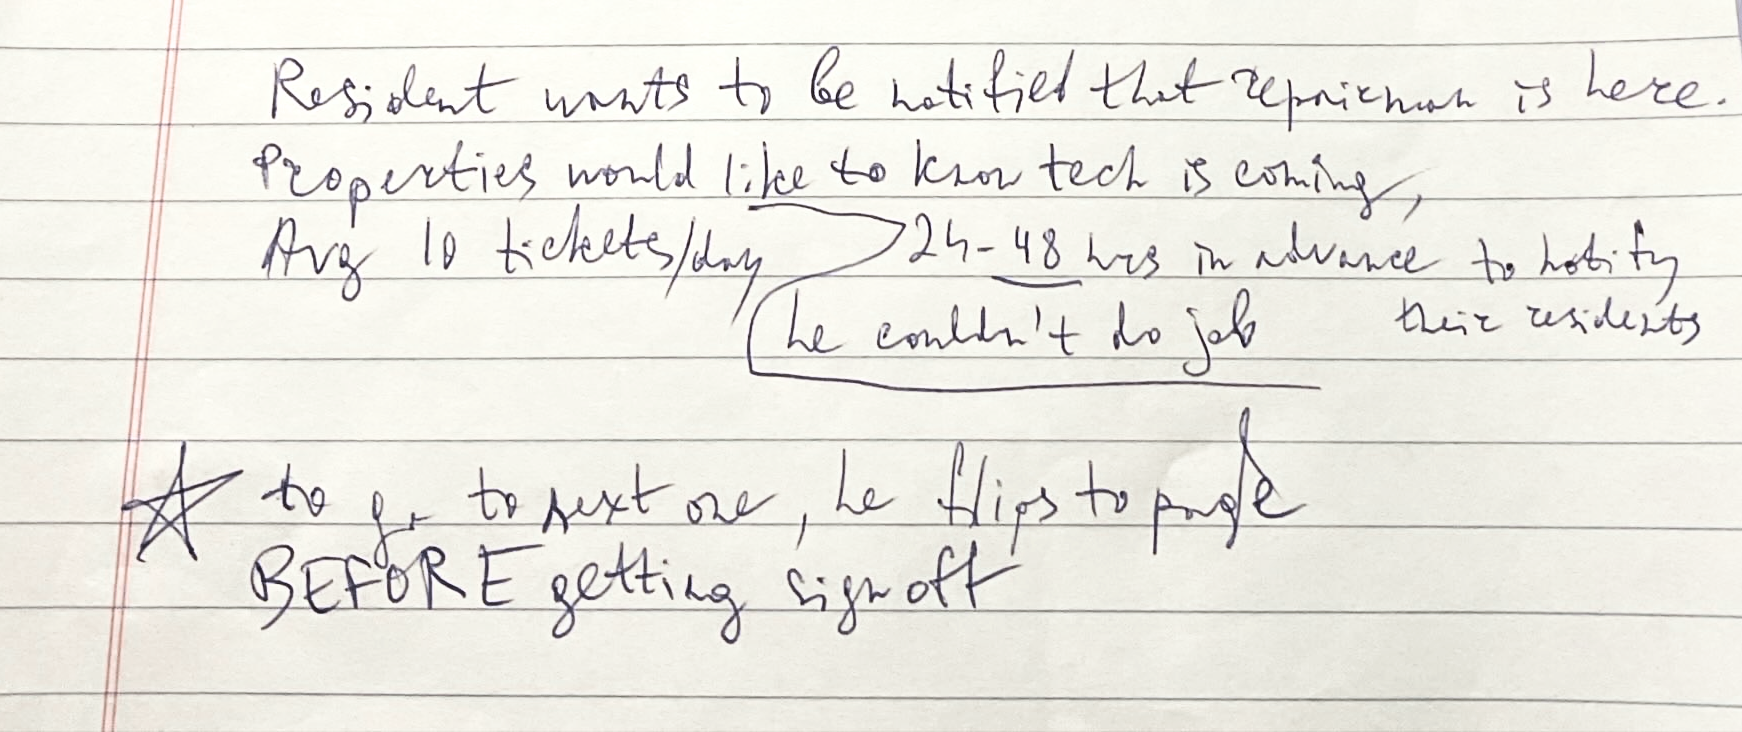 Resident wants to be notified that repairman is here.
Properties would like to know tech is coming,
Avg 10 tickets/day
24-48 hrs in advance to notify
their residents
he couldn't do job
to go to next one, he flips to page
BEFORE getting sign off